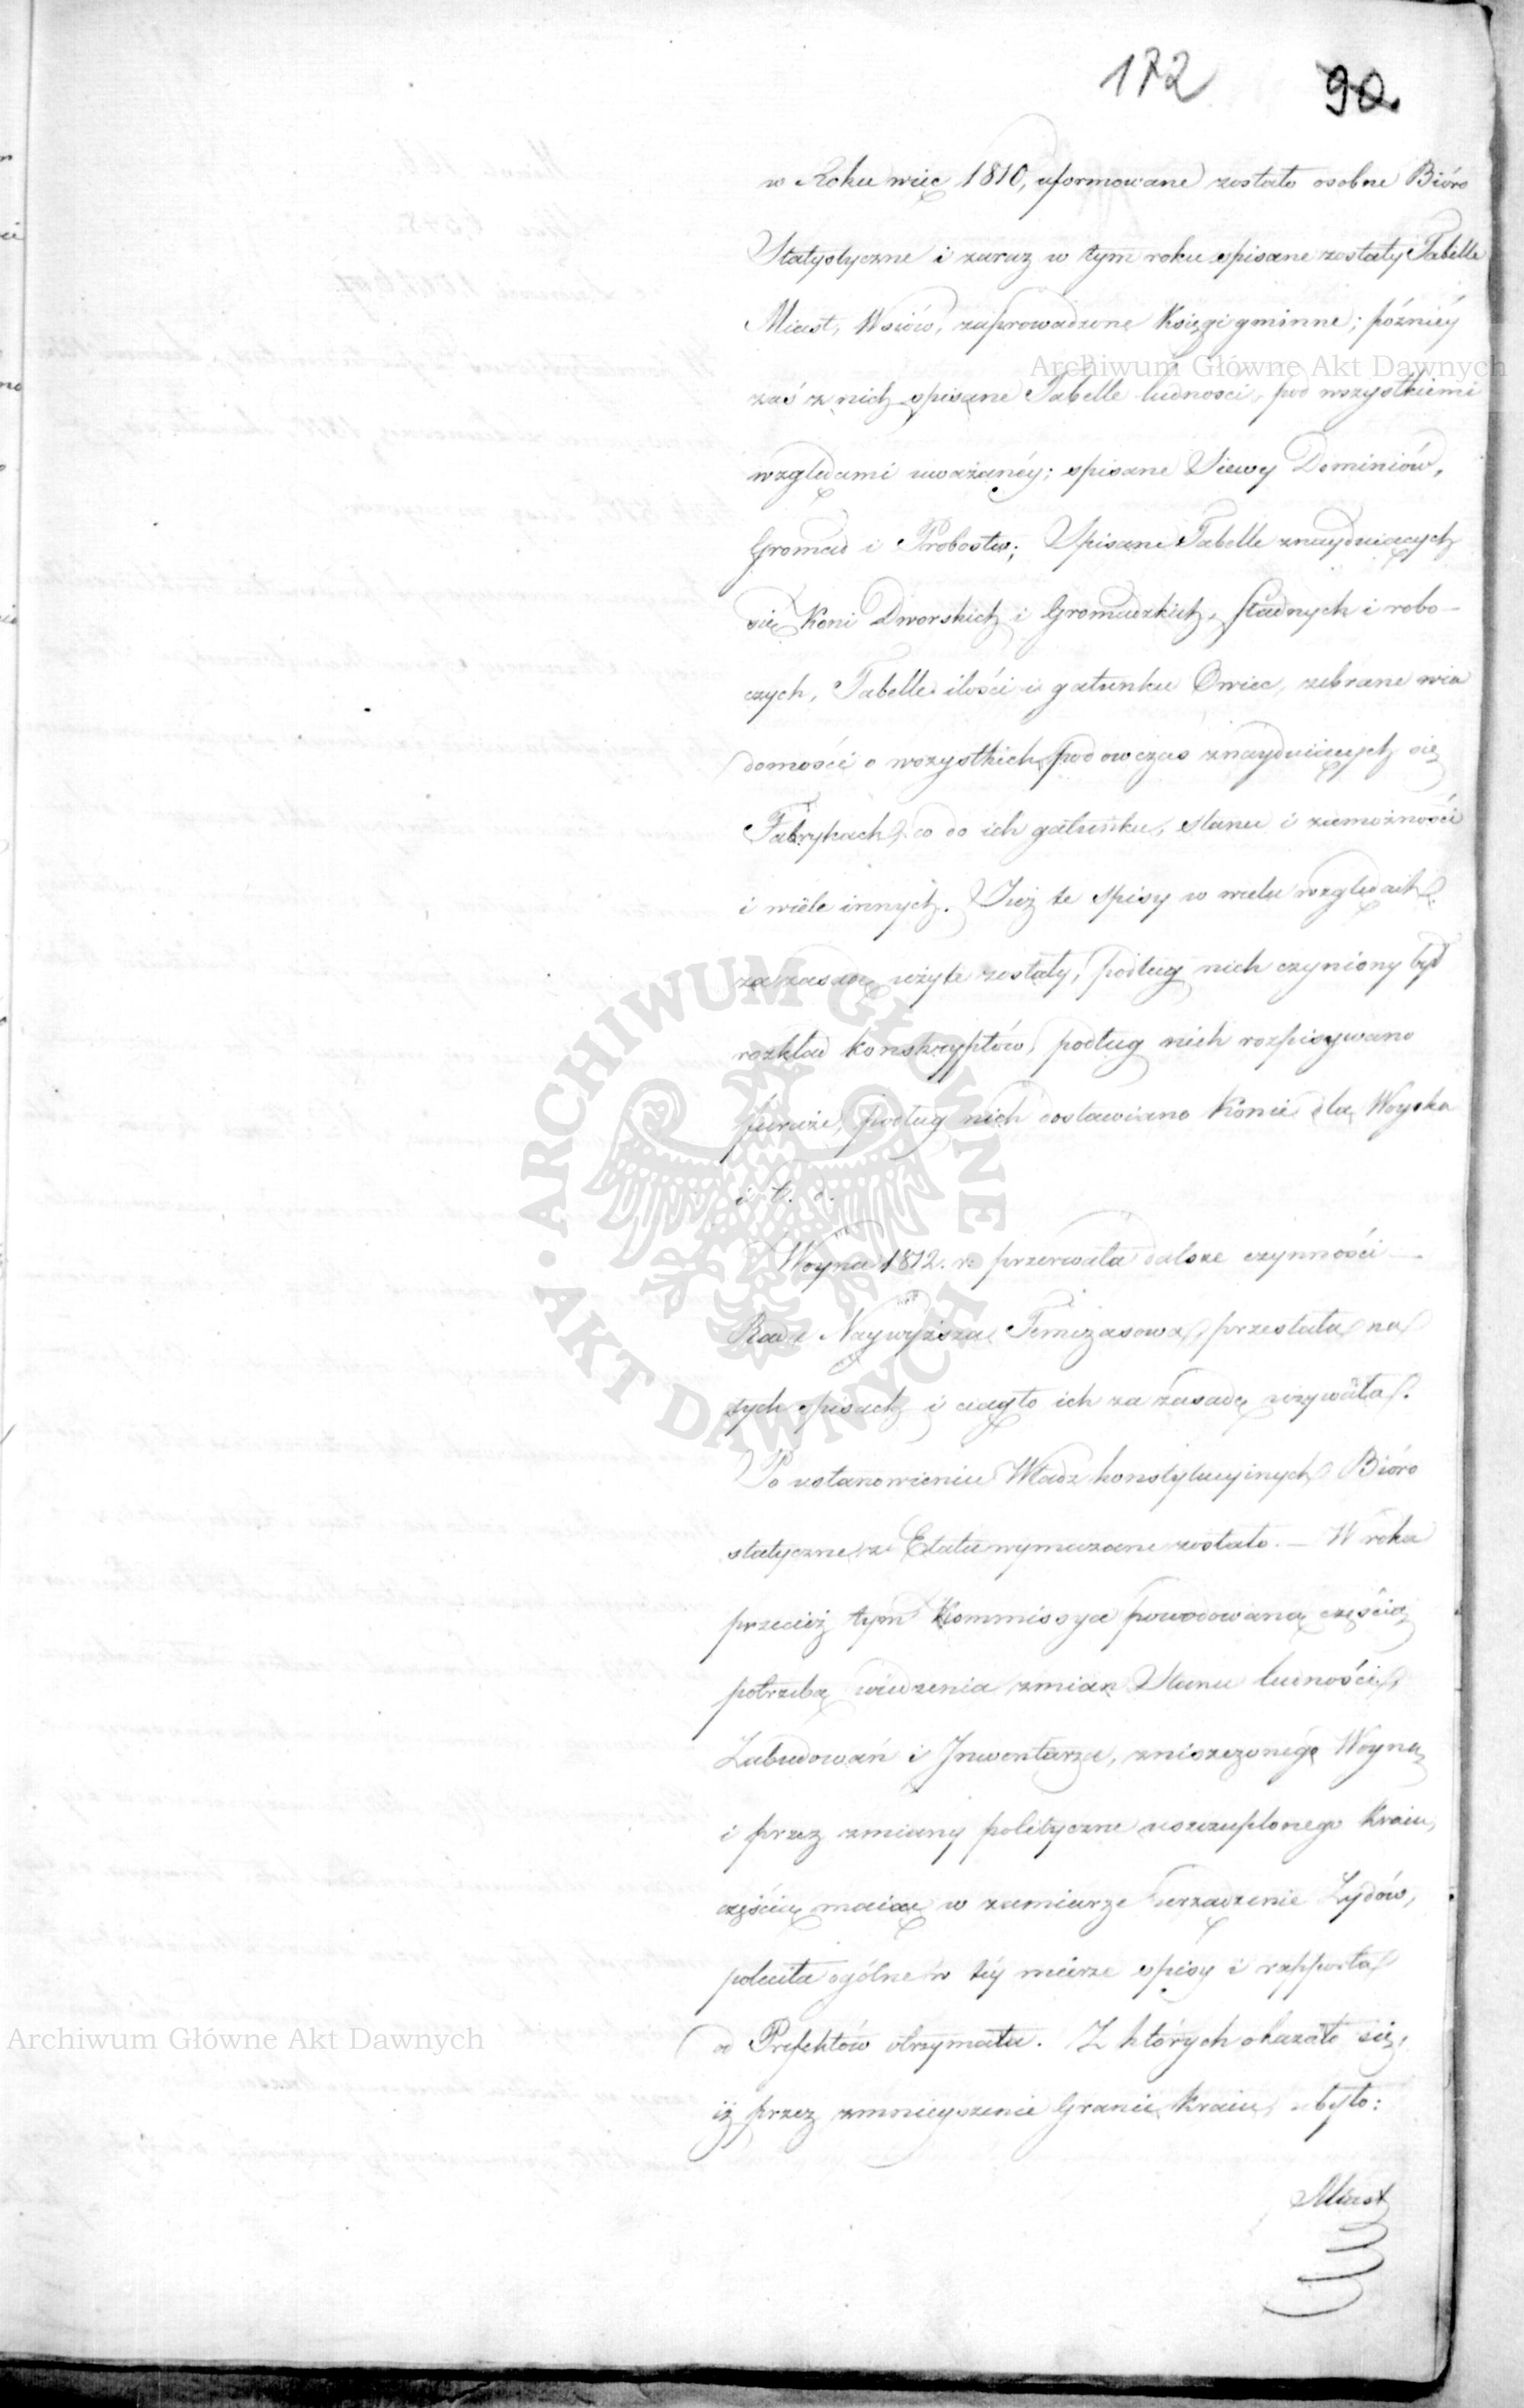 172 90.
w Roku więc 1810, uformowane zostało osobne Bióro
Statystyczne i zaraz w tym roku spisane zostały Tabelle
Miast, Wsiów, zaprowadzone Księgi gminne; późniéy
Archiwum Główne Akt Dawnych
zaś z nich spisane Tabelle ludności, pod wszystkiemi
względami uważanéy; spisane Siewy Dominiów,
Gromad i Probostw; Spisane Tabelle znayduiących
się Koni Dworskich i Gromadzkich, stadnych i robo-
czych, Tabelle ilości i gatunku Owiec, zebrane wia
domości o wszystkich podowczas znayduiących się
Fabrykach, co do ich gatunku, stanu i zamożności
i wiele innych. Już te spisy w wielu względach
za zasadę użyte zostały, podług nich czyniony był
rozkład konskryptów, podług nich rozpisywano
furaże, podług nich dostawiano Konie dla Woyska
i t. d.
ARCHIWUM GŁÓWNE AKT DAWNYCH
Woyna 1812. r. przerwała dalsze czynności —
Rada Naywyższa Tymczasowa, przestała na
tych spisach i ciągło ich za zasadę używała.
Po ustanowieniu Władz konstytucyinych Bióro
statyczne z Etatu wymazane zostało. — W roku
przecież tym Kommissya powodowana częścią
potrzebą wiedzenia zmian Stanu ludności,
Zabudowań i Inwentarza, zniszczonego Woyną
i przez zmiany polityczne uszczuplonego Kraiu,
częścią maiąc w zamiarze urządzenie Żydów,
poleciła ogólne w téy mierze spisy i rapporta
od Prefektów otrzymała. Z których okazało się,
Archiwum Główne Akt Dawnych
iż przez zmnieyszenie Granic Kraiu, ubyło:
Miast